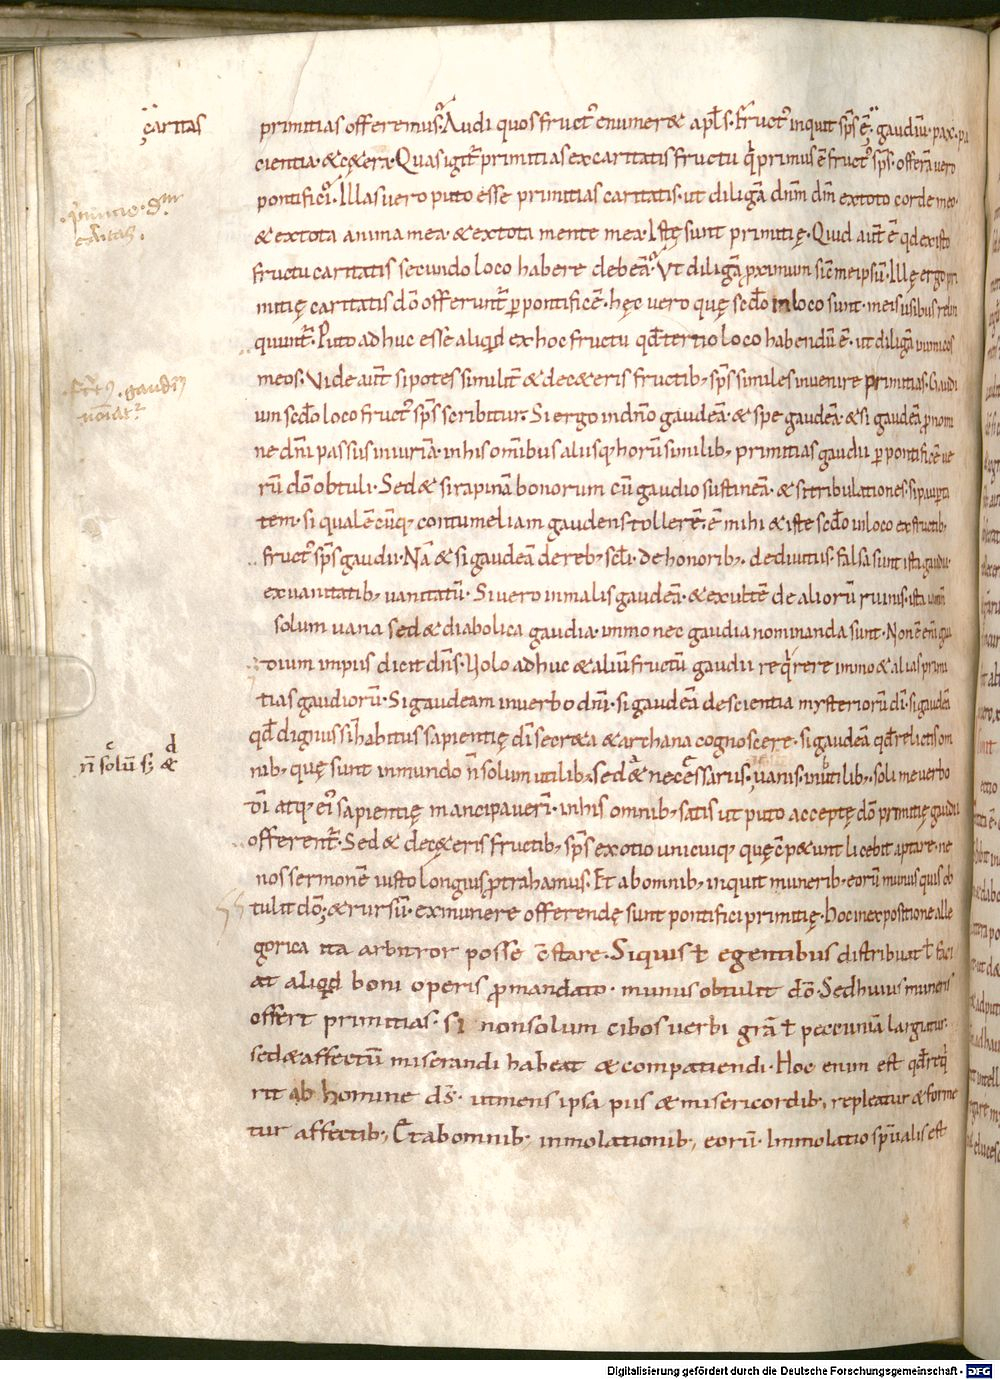 çaritas
primitias offeremus. Audi quos fruct᾽ enumer& apl̄s. Fruct᾽ inquit sp̄s ē. gaudiū. pax. pa
cientia. & c&ęra. Quas igit̄ primitias ex caritatis fructu q̄ primus ē fruct᾽ sp̄s. offerā vero
pontifici. Illas uero puto esse primitias caritatis. ut diligā dn̄m dm̄ ex toto corde meo.
primitię dn̄i
caritas.
& ex tota anima mea. & ex tota mente mea. Istę sunt primitię. Quid aut̄ ē qd ex isto
fructu caritatis secundo loco habere debeā. Vt diligā p̱ximum sic̄ me ipsū. Illę ergo pri
mitię caritatis dō offerunt̄ p̱ pontificē. hęc vero quę scd̄o in loco sunt. meis usibus relin
quunt̄. Puto adhuc esse aliquid ex hoc fructu qd̄ tertio loco habendū ē. ut diligā inimicos
fruct᾽. gaudiū
meos. Vide aut̄ si potes similit̄ & de c&eris fructib; sp̄s similes invenire primitias. Gaudi
um scd̄o loco fruct᾽ sp̄s scribitur. Si ergo in dn̄o gaudeā. & spe gaudeā. & si gaudeā p̱ nomi
ne dn̄i passus iniuriā. in his omībus aliisq; horū similib; primitias gaudii p̱ pontificē ue
rū dō obtuli. Sed & si rapinā bonorum cū gaudio sustineā. & si tribulationes. si paup̱ta
tem. si qualēcūq; contumeliam gaudens tollerē. ē mihi & iste scd̄o in loco ex fructib;
fruct᾽ sp̄s gaudii. Nā & si gaudeā de reb; scl̄i. de honorib;. de divitiis. falsa sunt ista gaudia.
ex vanitatib; vanitatū. Si uero in malis gaudeā. & exultē de aliorū ruinis. ista iam n̄
solum uana sed & diabolica gaudia. immo nec gaudia nominanda sunt. Non ē enī gau
dium impiis dicit dn̄s. Uolo adhuc & aliū fructū gaudii req̄rere immo & alias primi
tias gaudiorū. Si gaudeam in uerbo dn̄i. si gaudeā de scientia mysteriorū di̅. si gaudeā
qd̄ dignus sī habitus sapientię di̅ secr&a & archana cognoscere. si gaudeā qd̄ relictis om
n̄ solū s; &
nib; quę sunt in mundo n̄ solum utilib; sed & necessariis, uanis. inutilib; soli me verbo
di̅ atq; ei᾽ sapientię mancipaueri̅. in his omnib; satis ut puto acceptę dō primitię gaudii
offerent̄. Sed & de c&ęris fructib; sp̄s ex otio unicuiq; quę cōp&unt licebit aptare. ne
nos sermonē iusto longius p̱trahamus. Et ab omnib; inquit munerib; eorū munus quis ob
tulit dō; & rursū. ex munere offerendę sunt pontifici primitię. hoc in expositione alle
gorica ita arbitror posse c̄stare. Siquis ł egentibus distribuat ł faci
at aliquid boni operis p̱ mandato. munus obtulit dō. Sed huius muneris
offert primitias. si non solum cibos uerbi grā ł peccuniā largitur.
sed & affectū miserandi habeat & compatiendi. Hoc enim est qd̄ req̄
rit ab homine ds̄. ut mens ipsa pius & misericordib; repleatur & forme
tur affectib; Et ab omnib; inmolationib; eorū. Immolatio spūalis est
Digitalisierung gefördert durch die Deutsche Forschungsgemeinschaft - DFG